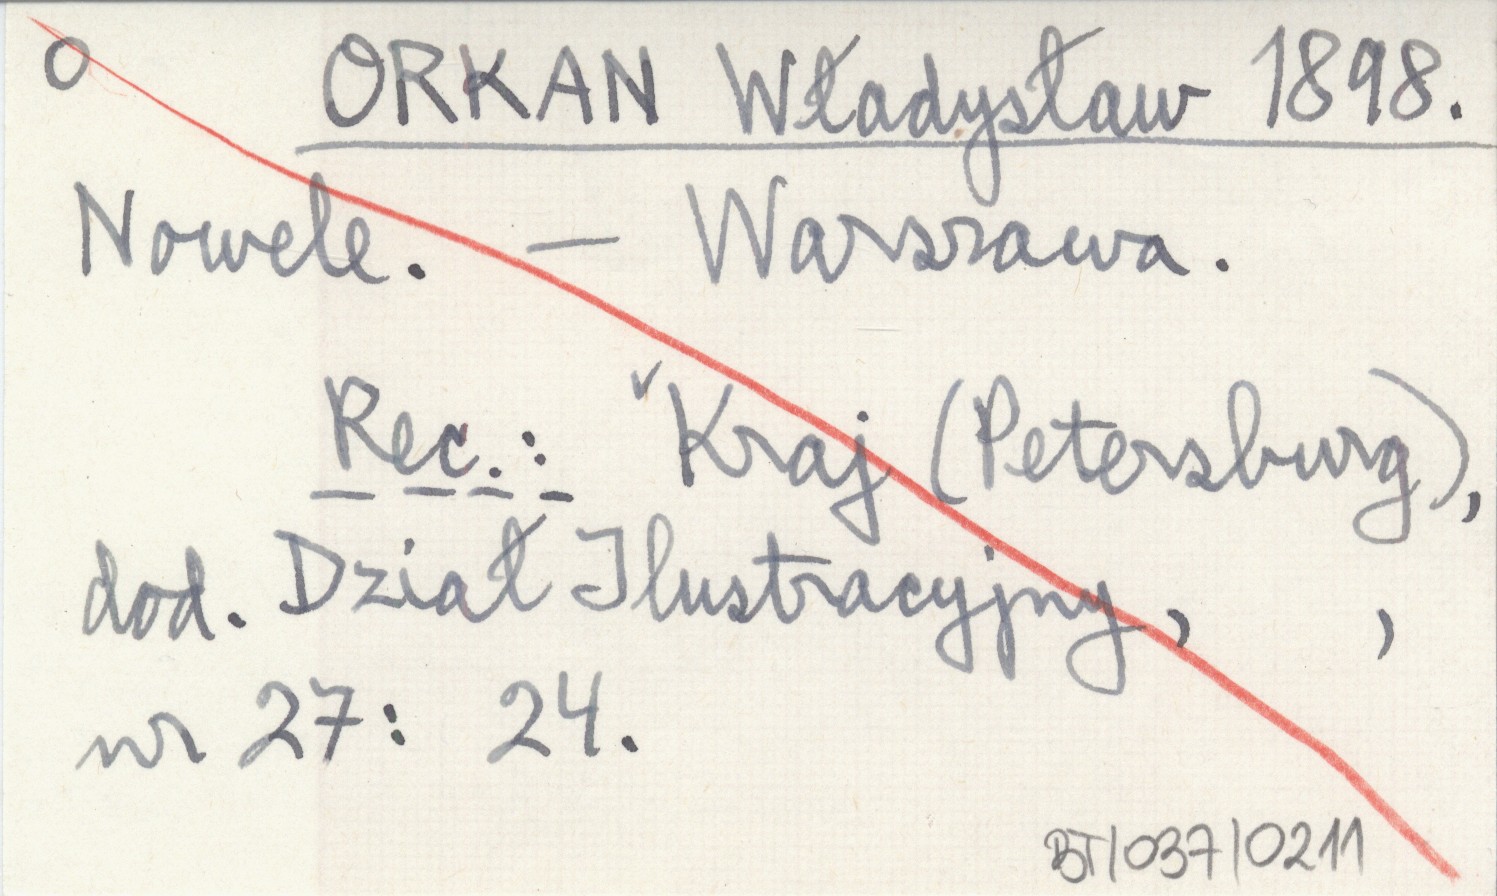 O ORKAN Władysław 1898.
Nowele. — Warszawa.
Rec.: Kraj (Petersburg),
dod. Dział Ilustracyjny, ,
nr 27: 24.
BT/037/0211